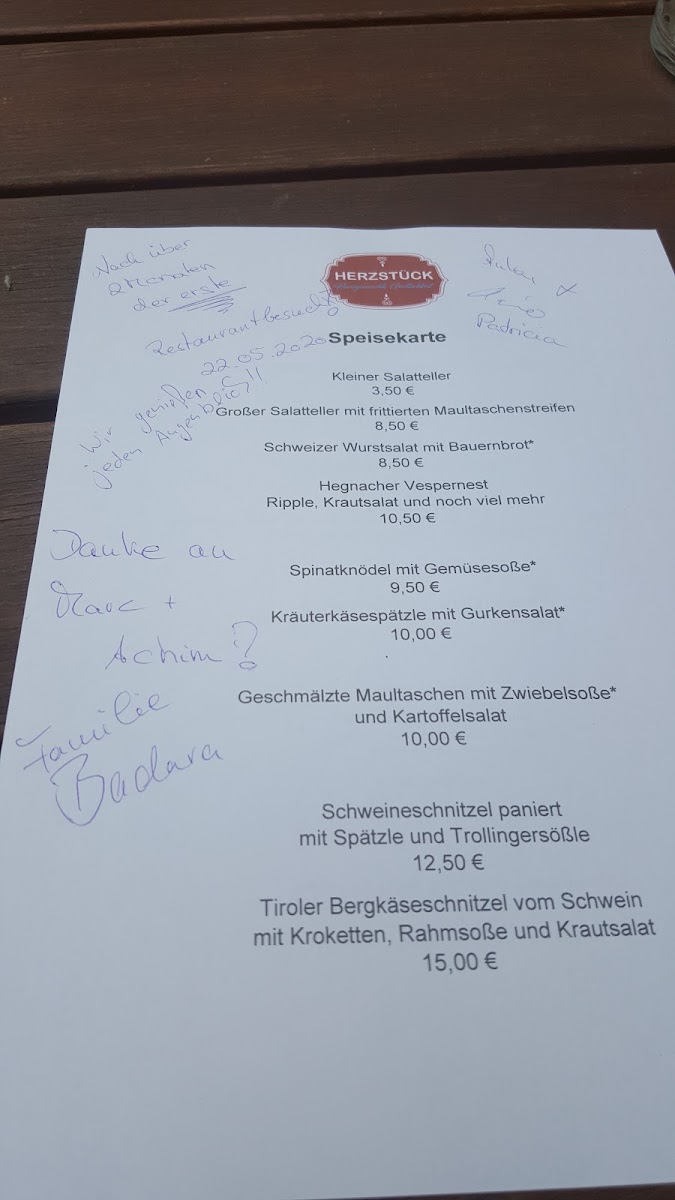 Nach über
2 Monaten
der erste
Restaurantbesuch!
22.05.2020
Wir genießen
jeden Augenblick!!
HERZSTÜCK
Patricia
Speisekarte
Kleiner Salatteller
3,50 €
Großer Salatteller mit frittierten Maultaschenstreifen
8,50 €
Schweizer Wurstsalat mit Bauernbrot*
8,50 €
Hegnacher Vespernest
Ripple, Krautsalat und noch viel mehr
10,50 €
Spinatknödel mit Gemüsesoße*
9,50 €
Kräuterkäsespätzle mit Gurkensalat*
10,00 €
Geschmälzte Maultaschen mit Zwiebelsoße*
und Kartoffelsalat
10,00 €
Schweineschnitzel paniert
mit Spätzle und Trollingersößle
12,50 €
Tiroler Bergkäseschnitzel vom Schwein
mit Kroketten, Rahmsoße und Krautsalat
15,00 €
Danke an
Marc +
Achim!
Familie
Badara